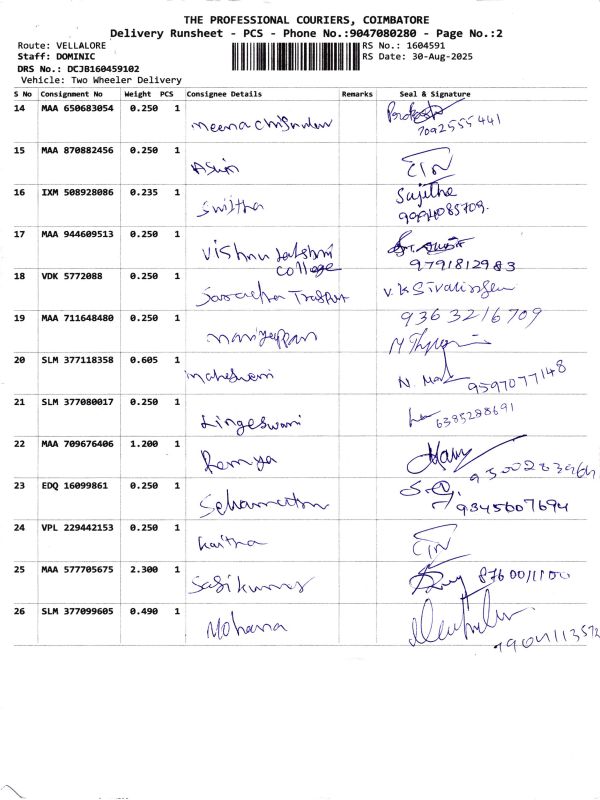 THE PROFESSIONAL COURIERS, COIMBATORE
Delivery Runsheet - PCS - Phone No.:9047080280 - Page No.:2
Route: VELLALORE RS No.: 1604591
Staff: DOMINIC RS Date: 30-Aug-2025
DRS No.: DCJB160459102
Vehicle: Two Wheeler Delivery
S No Consignment No Weight PCS Consignee Details Remarks Seal & Signature
14 MAA 650683054 0.250 1
7092555441
15 MAA 870882456 0.250 1
16 IXM 508928086 0.235 1 Sujitha
17 MAA 944609513 0.250 1 Vishnu Lakshmi
College 9791812983
18 VDK 5772088 0.250 1
19 MAA 711648480 0.250 1 9363216709
20 SLM 377118358 0.605 1 Maheswari
9597077148
21 SLM 377080017 0.250 1 Lingeswari 6385288691
22 MAA 709676406 1.200 1 Remya
23 EDQ 16099861 0.250 1 9345607694
24 VPL 229442153 0.250 1
25 MAA 577705675 2.300 1 Sasikumar
26 SLM 377099605 0.490 1 Mohana